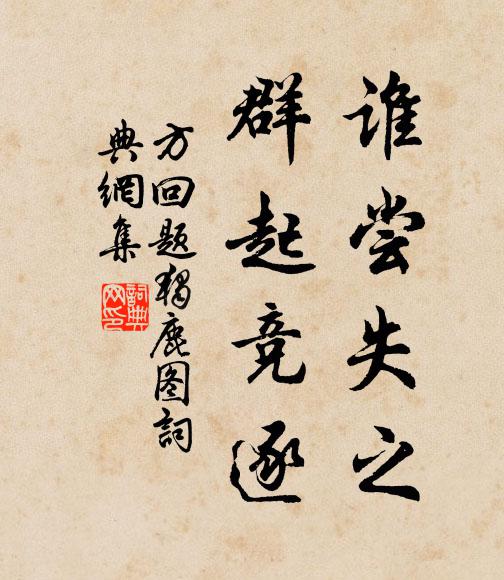 谁尝失之
群起竞逐
方回题独鹿图詞
典網集
詞典网印